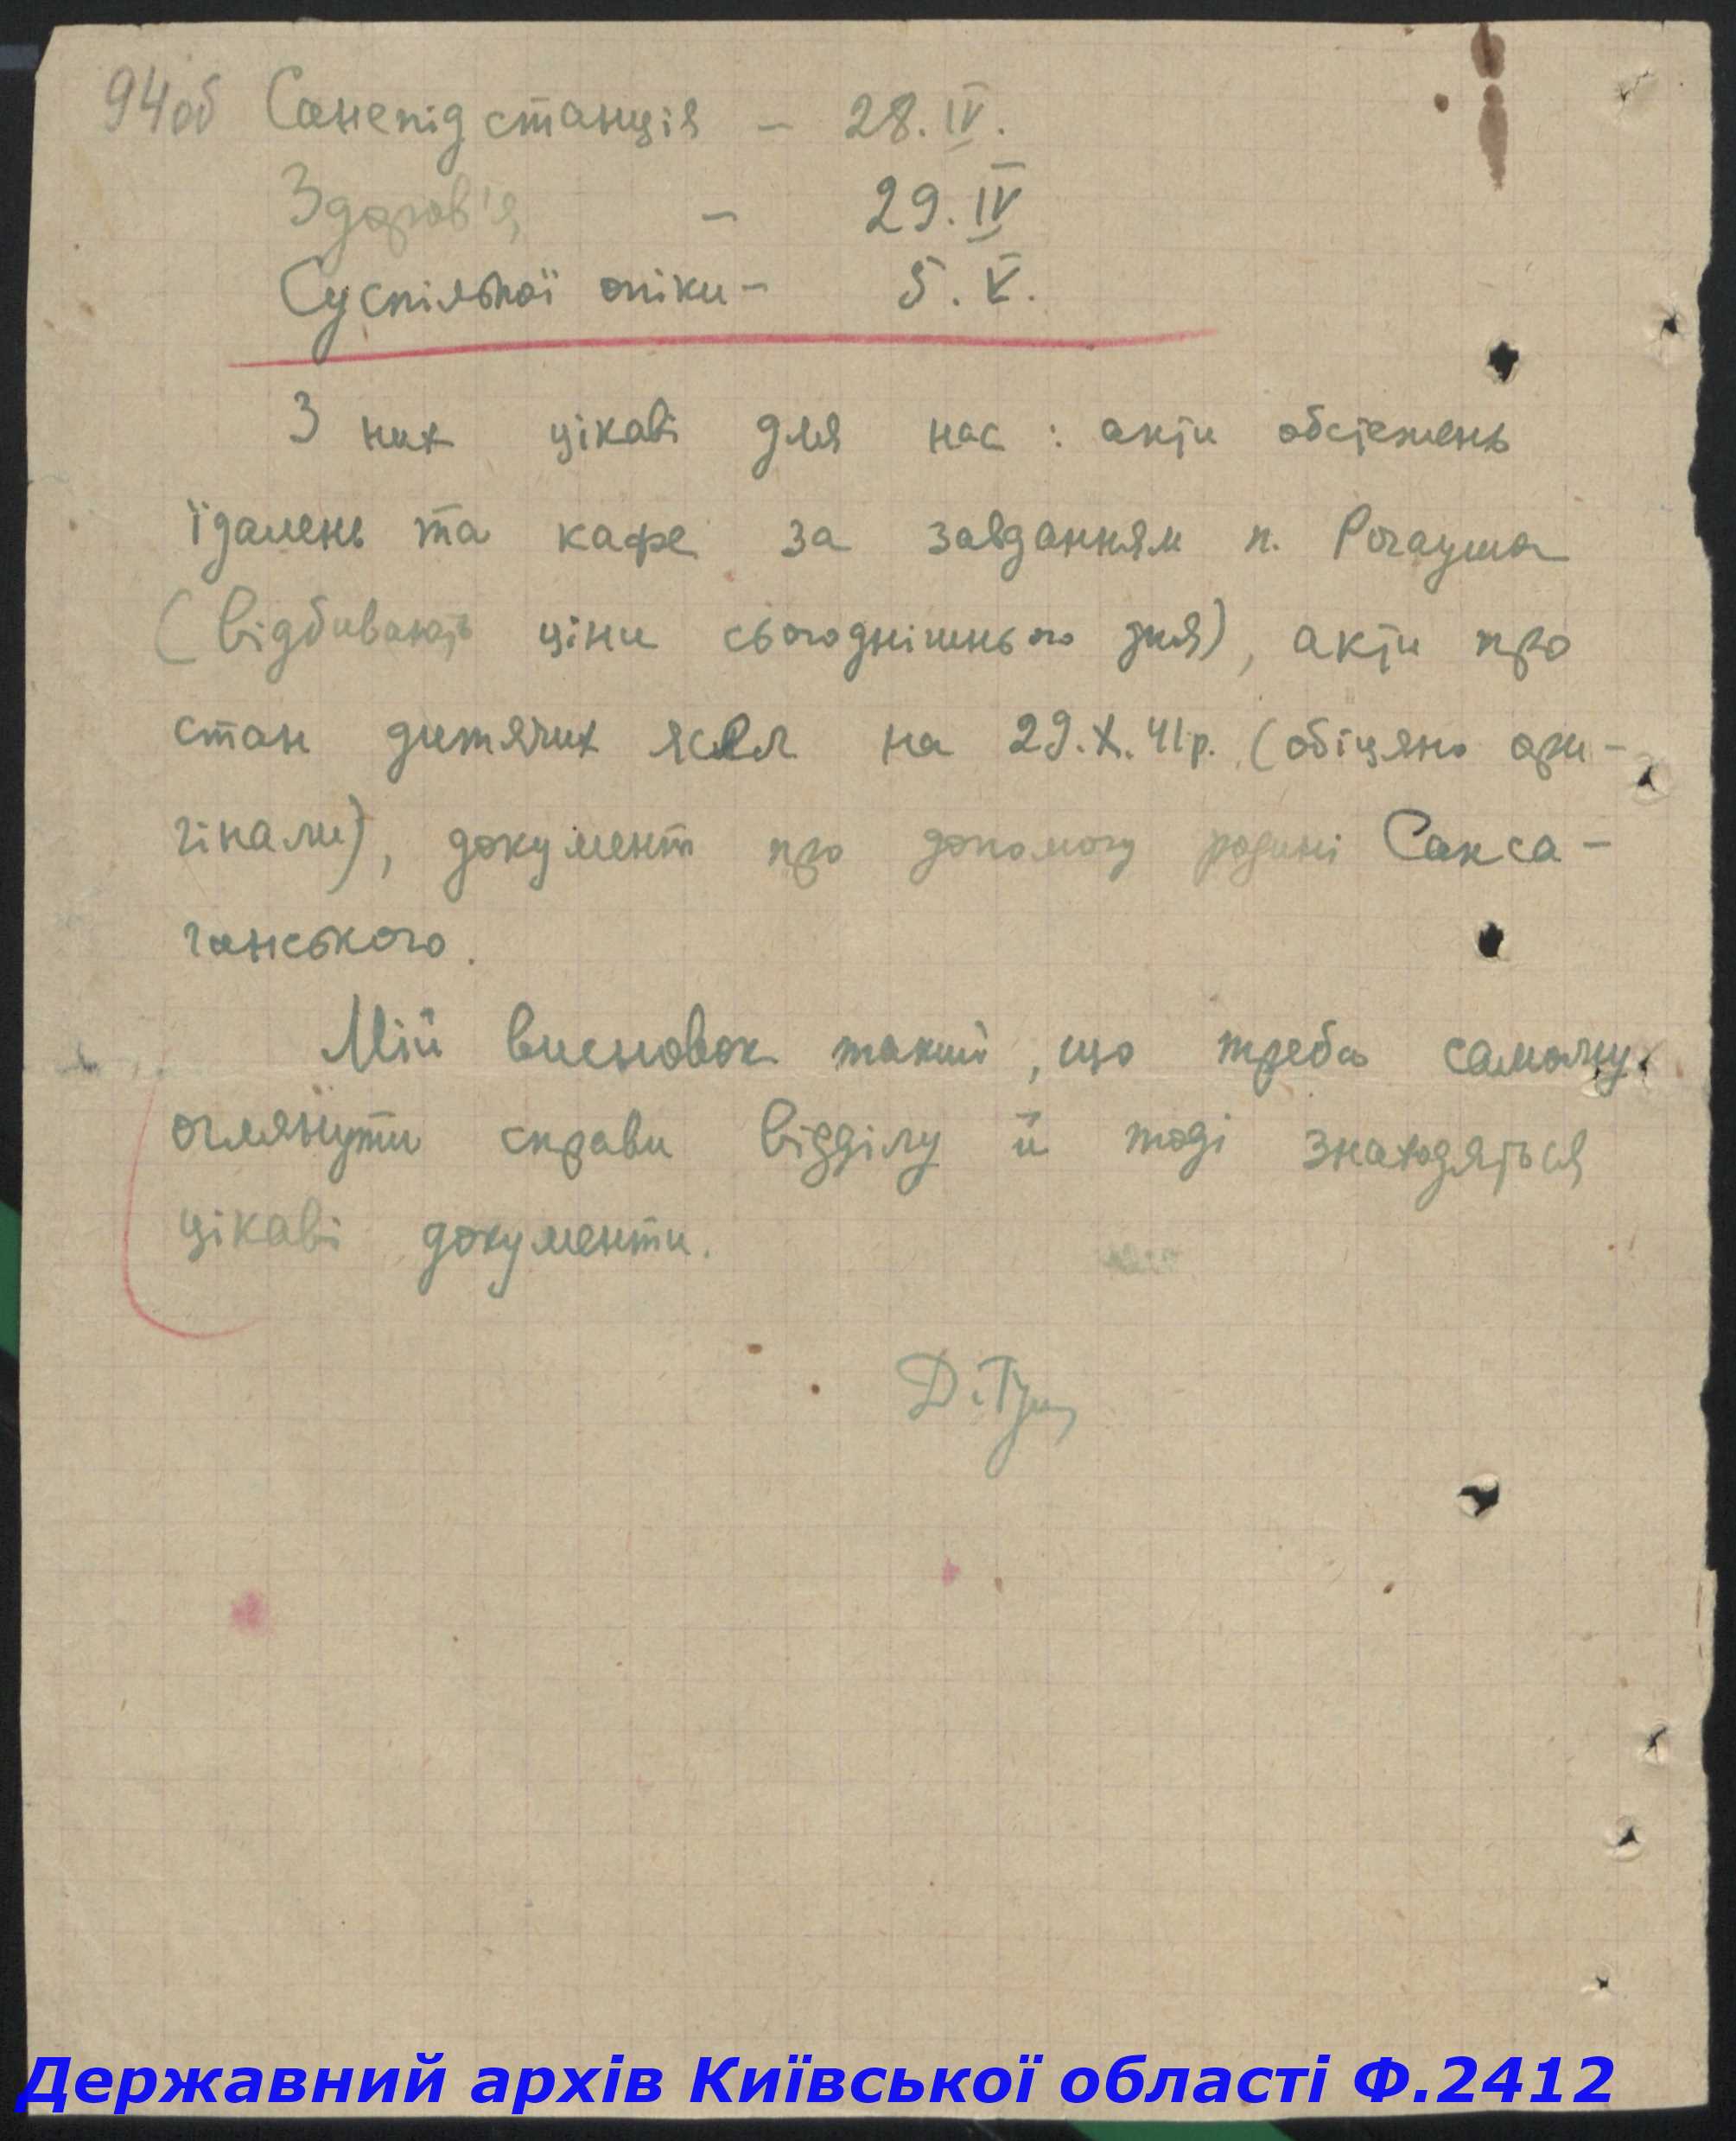 94об Санепідстанція – 28.IV.
Здоров'я – 29.IV
Суспільної опіки – 5.V.
З них цікаві для нас: акти обстежень
їдалень та кафе за завданням п.
(відбивають ціни сьогоднішнього дня), акти про
стан дитячих ясел на 29.X.41р. (обіцяно ори-
гінали), документ про допомогу родині Сакса-
ганського.
Мій висновок такий, що треба самому
оглянути справи відділу й тоді знаходяться
цікаві документи.
Д.
Державний архів Київської області Ф.2412